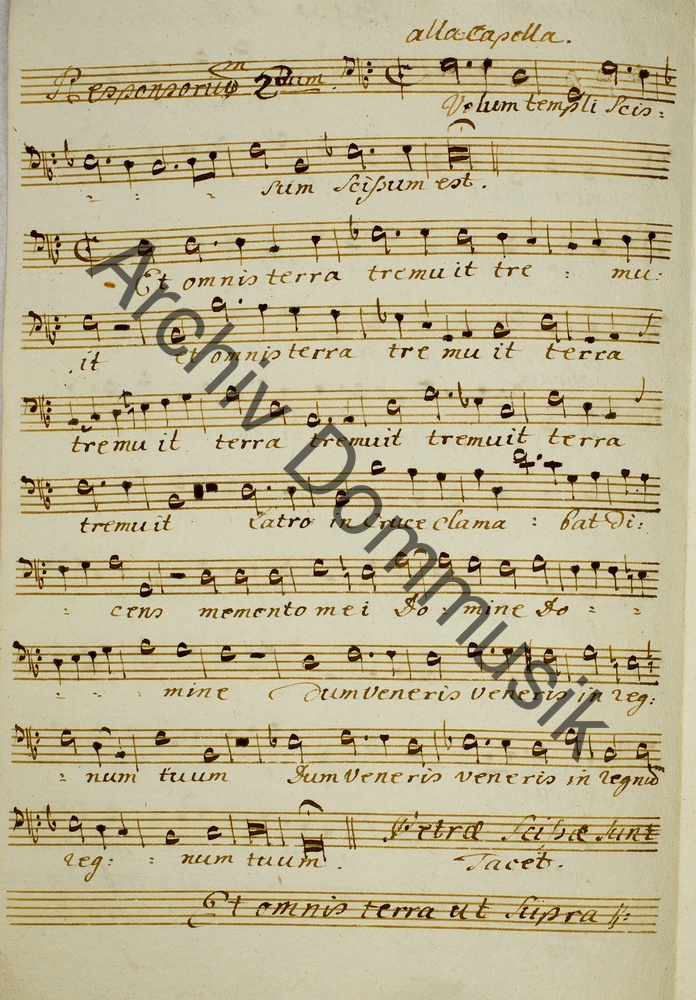 alla Capella.
Responsorium 2dum.
Velum templi Scis:
sum Scissum est.
Et omnis terra tremuit tre : mu:
it et omnis terra tre mu it terra
tremu it terra tremuit tremuit terra
tremuit Latro in Cruce Clama : bat di:
: cens memento mei Do : mine Do : :
: : mine Dum Veneris Veneris in reg:
: num tuum Dum Veneris veneris in regno
reg: : num tuum.
Petræ Scissæ Sunt
Tacet.
Et omnis terra ut Supra
Archiv Dommusik